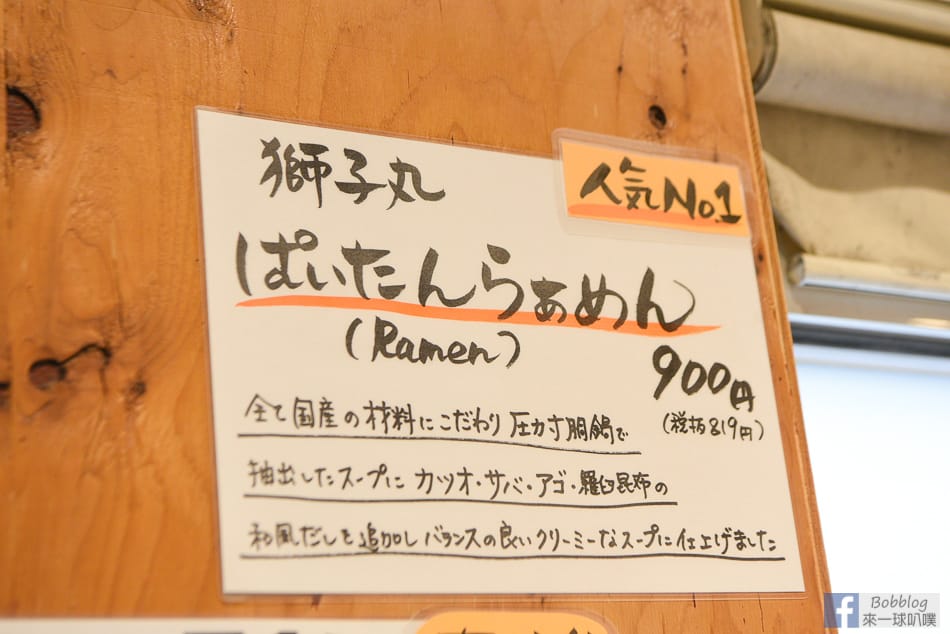 獅子丸
人気No.1
ぱいたんらぁめん
(Ramen)
900円
(税抜819円)
全て国産の材料にこだわり圧力寸胴鍋で
抽出したスープにカツオ・サバ・アゴ・羅臼昆布の
和風だしを追加しバランスの良いクリーミーなスープに仕上げました
Bobblog
來一球叭噗